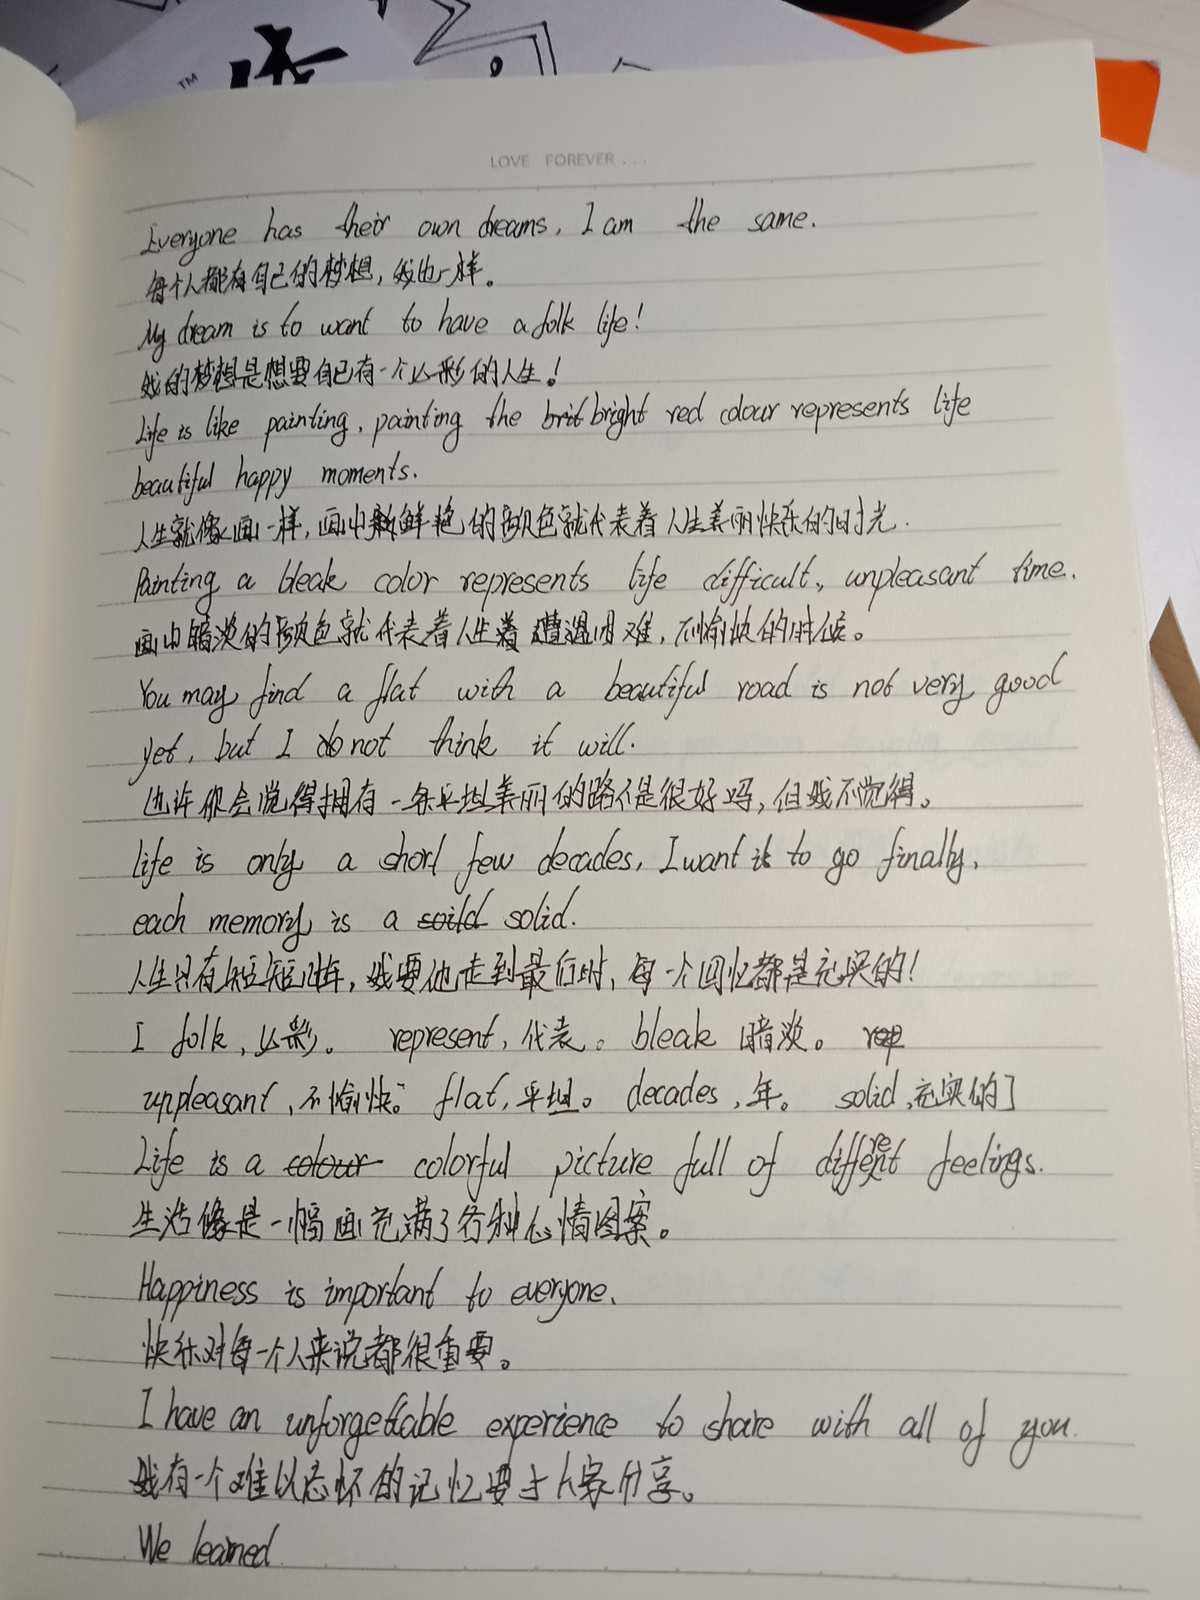 TM
LOVE FOREVER...
Everyone has their own dreams, I am the same.
每个人都有自己的梦想，我也一样。
My dream is to want to have a folk life!
我的梦想是想要自己有一个么彩的人生！
Life is like painting, painting the brit bright red colour represents life
beautiful happy moments.
人生就像画一样，画中鲜艳的颜色就代表着人生美丽快乐的时光.
Painting a bleak color represents life difficult, unpleasant time.
画中暗淡的颜色就代表着人生着遭遇困难，不愉快的时候。
You may find a flat with a beautiful road is not very good
yet, but I do not think it will.
也许你会觉得拥有一条平坦美丽的路不是很好吗，但我不觉得。
life is only a short few decades, I want it to go finally,
each memory is a soild solid.
人生只有短短，我要他走到最后时，每一个回忆都是充实的！
I folk，么彩。 represent，代表。bleak 暗淡。rep
unpleasant，不愉快。flat，平坦。decades，年。solid，充实的]
Life is a colour colorful picture full of different feelings.
生活像是一幅画充满了各种心情图案。
Happiness is important to everyone.
快乐对每一个人来说都很重要。
I have an unforgettable experience to share with all of you.
我有一个难以忘怀的记忆要与大家分享。
We learned